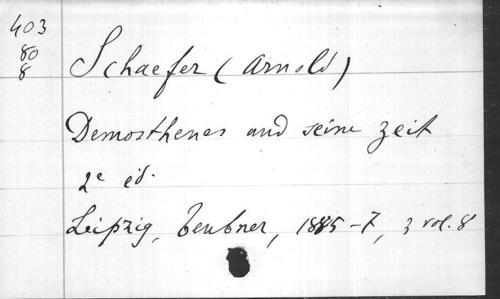 403
80
8
Schaefer (Arnold)
Demosthenes und seine Zeit
2e éd.
Leipzig, Teubner, 1885-7, 3 vol. 8